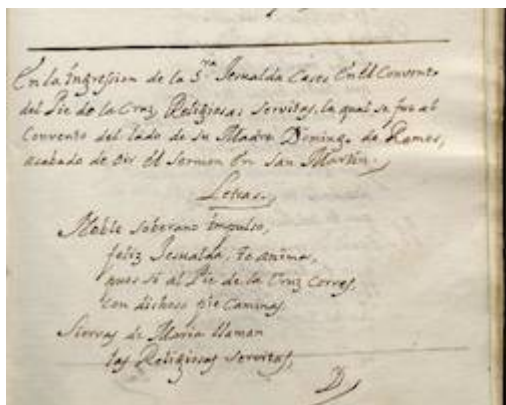 En la Ingression de la S.ra Jesualda Cases En el Convento
del Pie de la Cruz Religiosas Servitas, la qual se fue al
Convento del lado de su Madre Doming.o de Ramos,
acabado de oir el Sermon En San Martin.
Letras.
Noble soberano impulso,
feliz Jesualda, te anima,
pues si al Pie de la Cruz corres,
con dichoso pie caminas.
Siervas de Maria llaman
las Religiosas Servitas,